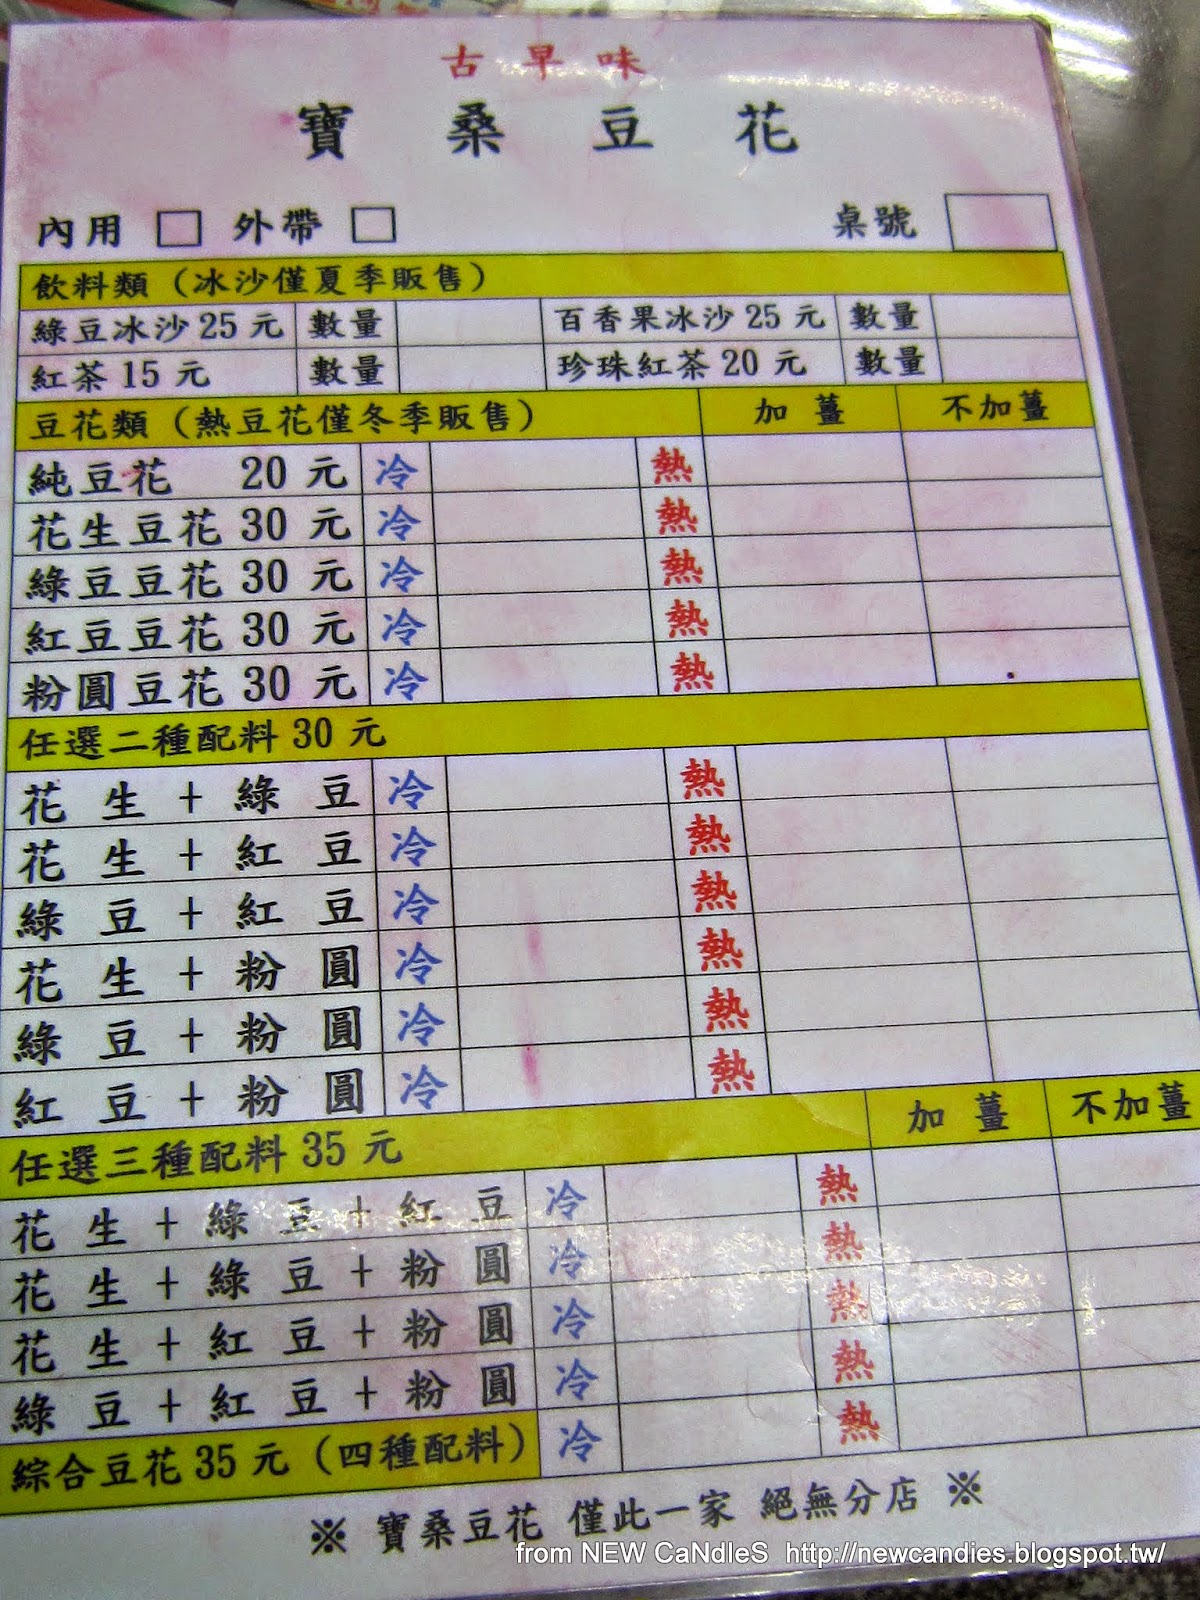 古早味
寶桑豆花
內用 □ 外帶 □ 桌號
飲料類（冰沙僅夏季販售）
綠豆冰沙25元 數量 百香果冰沙25元 數量
紅茶15元 數量 珍珠紅茶20元 數量
豆花類（熱豆花僅冬季販售） 加薑 不加薑
純豆花 20元 冷 熱
花生豆花30元 冷 熱
綠豆豆花30元 冷 熱
紅豆豆花30元 冷 熱
粉圓豆花30元 冷 熱
任選二種配料30元
花生+綠豆 冷 熱
花生+紅豆 冷 熱
綠豆+紅豆 冷 熱
花生+粉圓 冷 熱
綠豆+粉圓 冷 熱
紅豆+粉圓 冷 熱
任選三種配料35元 加薑 不加薑
花生+綠豆+紅豆 冷 熱
花生+綠豆+粉圓 冷 熱
花生+紅豆+粉圓 冷 熱
綠豆+紅豆+粉圓 冷 熱
綜合豆花35元（四種配料） 冷 熱
※ 寶桑豆花 僅此一家 絕無分店 ※
from NEW CaNdleS http://newcandies.blogspot.tw/